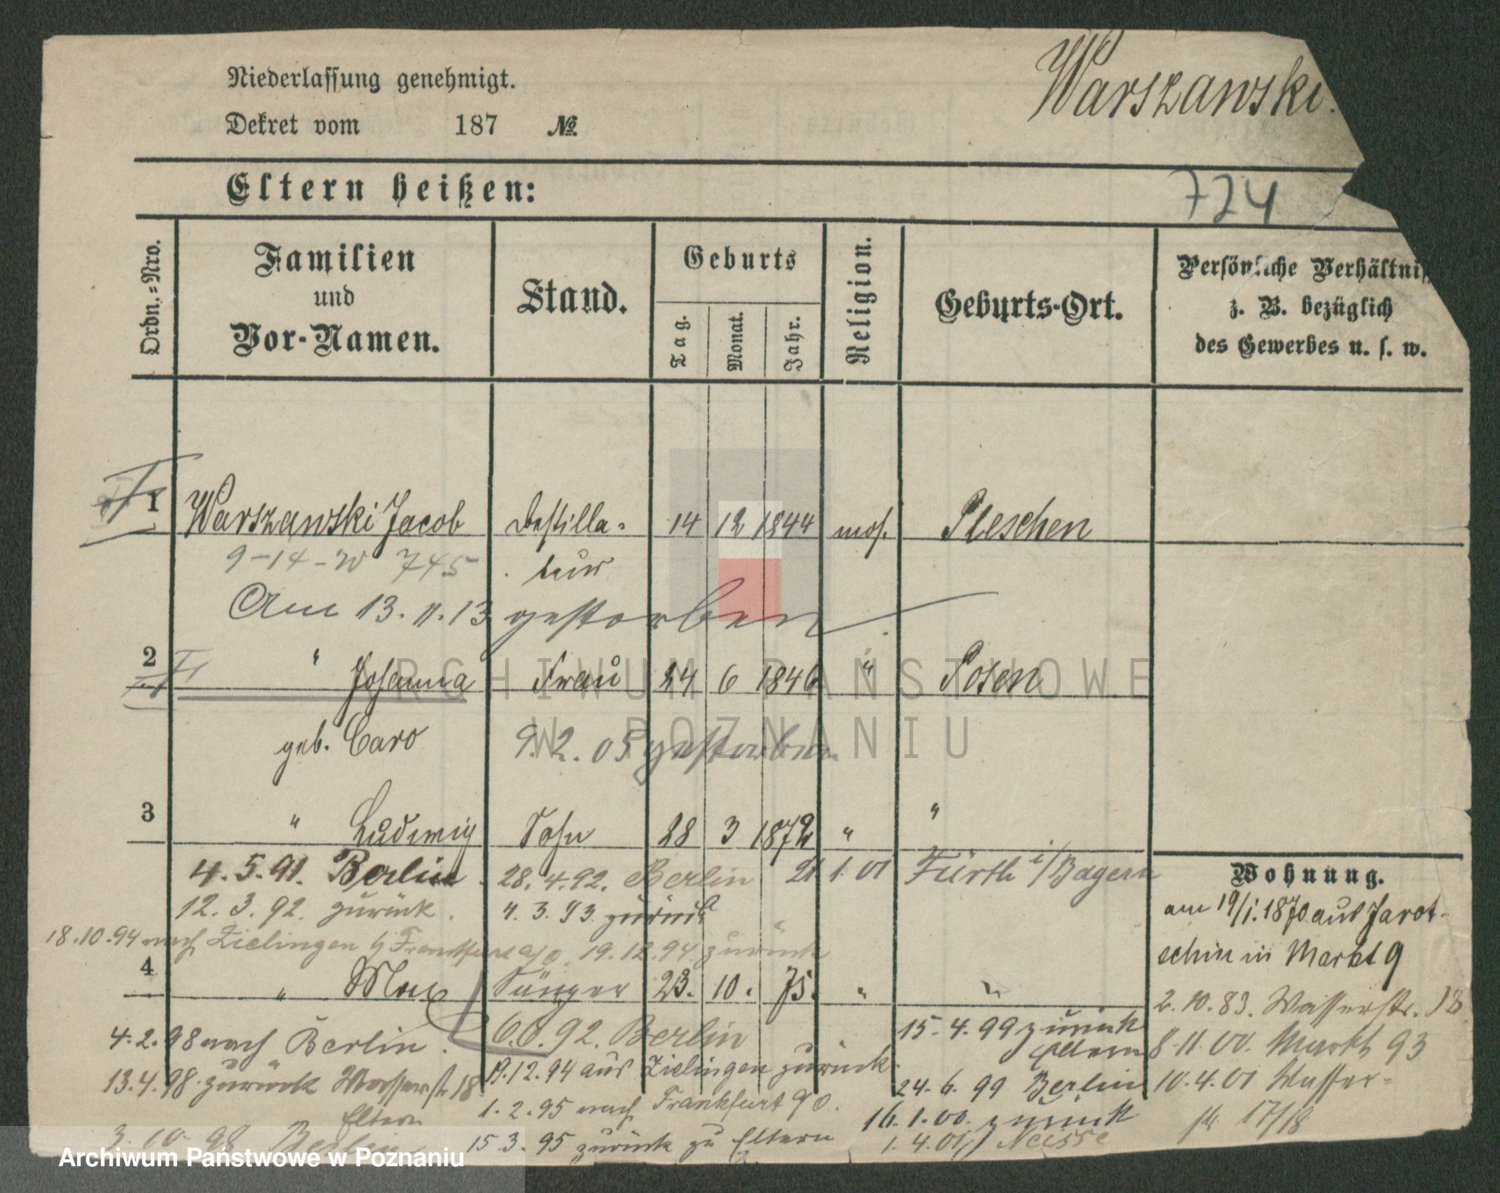 Warszawski.
Niederlassung genehmigt.
Dekret vom 187 №
724
Eltern heißen:
Ordn.-Nro.
Familien
und
Vor-Namen.
Stand.
Geburts
Tag.
Monat.
Jahr.
Religion.
Geburts-Ort.
Persönliche Verhältnis
z. B. bezüglich
des Gewerbes u. s. w.
1 Warszawski Jacob Destilla- 14 12 1844 mos. Pleschen
9-14-W 745 teur
Am 13.11.13 gestorben
2 " Johanna Frau 24 6 1846 " Posen
geb. Caro 9.2.05 gestorben
3 " Ludwig Sohn 28 3 1872 " "
4.5.91. Berlin 28.4.92. Berlin 21.1.01 Fürth i/Bayern
12.3.92. zurück. 4.3.93 zurück
18.10.94 nach Zielingen b/ Frankfurt a/O. 19.12.94. zurück
4 " Max Sänger 23. 10. 75. " "
6.6.92. Berlin 15.4.99 zurück
4.2.98 nach Berlin. Eltern
19.12.94 aus Zielingen zurück.
13.4.98. zurück Wasserstr 18 24.6.99 Berlin
Eltern 1.2.95 nach Frankfurt a/O. 16.1.00. zurück
3.10.98 Berlin 15.3.95 zurück zu Eltern 1.4.01 Neisse
Wohnung.
am 19/1.1870 aus Jarot-
schin in Markt 9
2.10.83. Wasserstr. 18
8.11.00. Markt 93
10.4.01 Wasser-
str. 17/18
ARCHIWUM PAŃSTWOWE
W POZNANIU
Archiwum Państwowe w Poznaniu